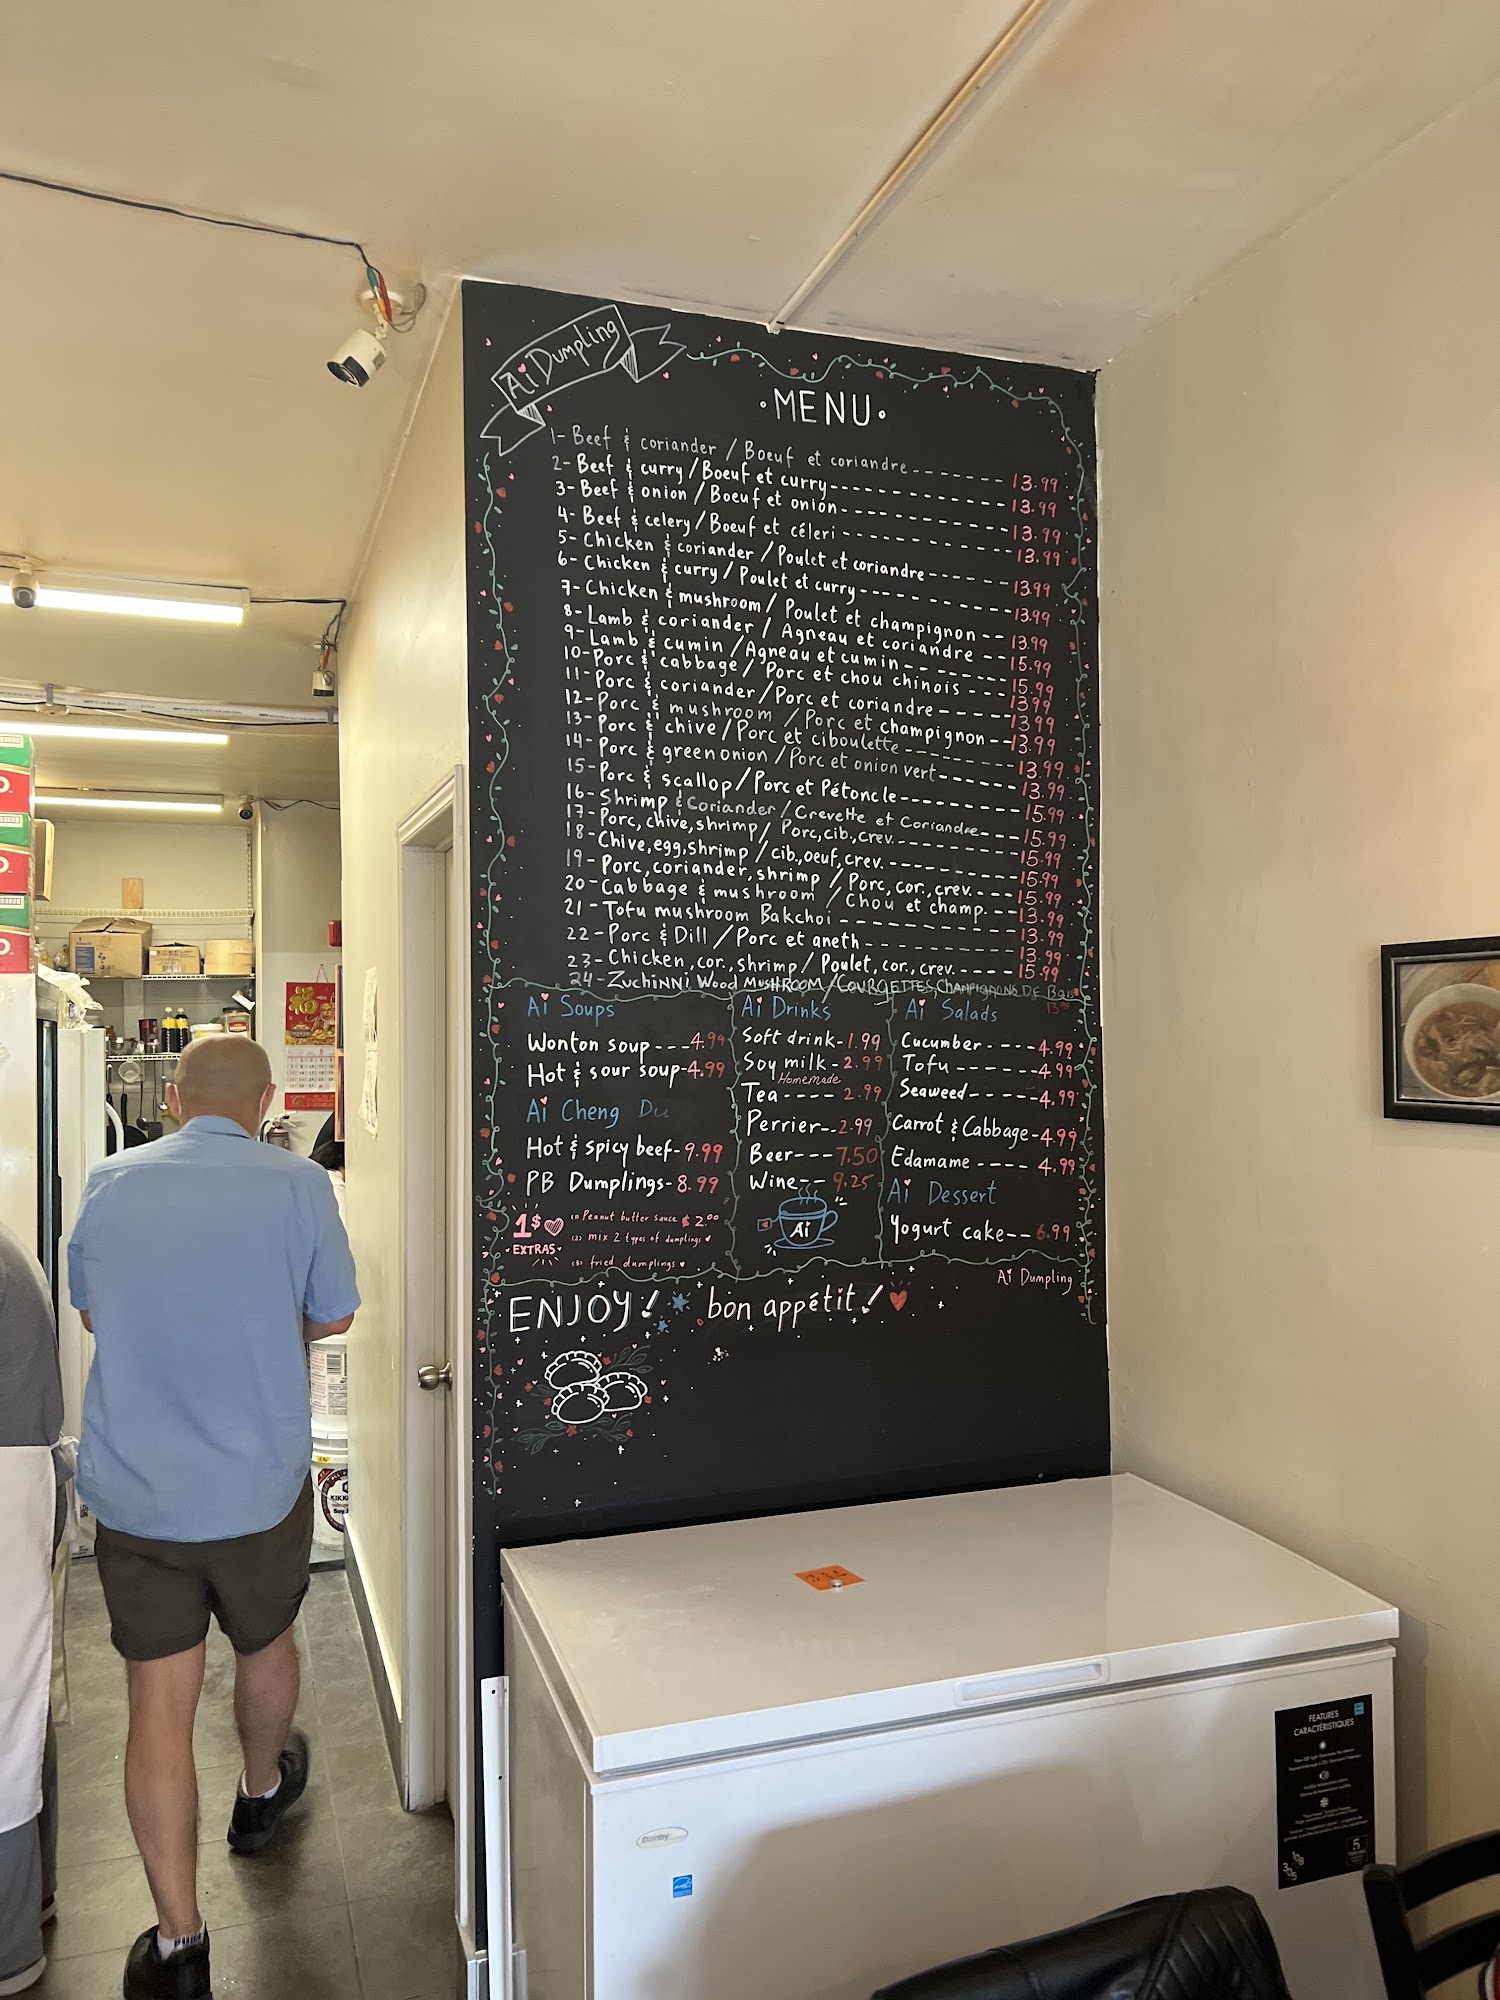 Ai Dumpling
·MENU·
1- Beef & coriander / Boeuf et coriandre ------- 13.99
2- Beef & curry / Boeuf et curry ------------ 13.99
3- Beef & onion / Boeuf et onion ------------ 13.99
4- Beef & celery / Boeuf et céleri ------------ 13.99
5- Chicken & coriander / Poulet et coriandre ------ 13.99
6- Chicken & curry / Poulet et curry ----------- 13.99
7- Chicken & mushroom / Poulet et champignon -- 13.99
8- Lamb & coriander / Agneau et coriandre -- 15.99
9- Lamb & cumin / Agneau et cumin -- ------ 15.99
10- Porc & cabbage / Porc et chou chinois --- 13.99
11- Porc & coriander / Porc et coriandre ----- 13.99
12- Porc & mushroom / Porc et champignon -- 13.99
13- Porc & chive / Porc et ciboulette -------- 13.99
14- Porc & green onion / Porc et onion vert ----- 13.99
15- Porc & scallop / Porc et Pétoncle -------- 15.99
16- Shrimp & Coriander / Crevette et Coriandre --- 15.99
17- Porc, chive, shrimp / Porc, cib., crev. --------- 15.99
18- Chive, egg, shrimp / cib., oeuf, crev. --------- 15.99
19- Porc, coriander, shrimp / Porc, cor., crev. ---- 15.99
20- Cabbage & mushroom / Chou et champ. --- 13.99
21- Tofu mushroom Bakchoi ------------ 13.99
22- Porc & Dill / Porc et aneth ----------- 13.99
23- Chicken, cor., shrimp / Poulet, cor., crev. ---- 15.99
24- ZuchiNNi Wood MusHROOM / COURGETTES, CHAMPIGNONS DE Bois
13.99
Ai Soups
Wonton soup --- 4.99
Hot & sour soup - 4.99
Ai Cheng Du
Hot & spicy beef - 9.99
PB Dumplings - 8.99
1$ EXTRAS
(1) Peanut butter sauce $ 2.00
(2) mix 2 types of dumplings
(3) fried dumplings
Ai Drinks
Soft drink - 1.99
Soy milk - 2.99
Homemade
Tea ---- 2.99
Perrier -- 2.99
Beer --- 7.50
Wine -- 9.25
Ai
Ai Salads
Cucumber ---- 4.99
Tofu ------ 4.99
Seaweed ----- 4.99
Carrot & Cabbage - 4.99
Edamame ---- 4.99
Ai Dessert
Yogurt cake -- 6.99
Ai Dumpling
ENJOY! bon appétit!
福
KIKK
Danby
FEATURES
CARACTÉRISTIQUES
5